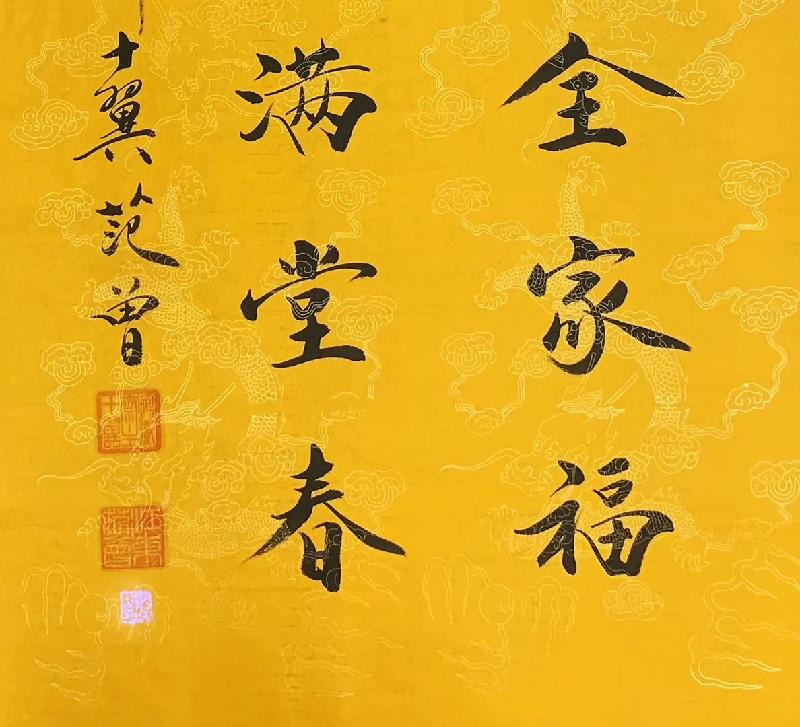 全家福
满堂春
十翼范曾